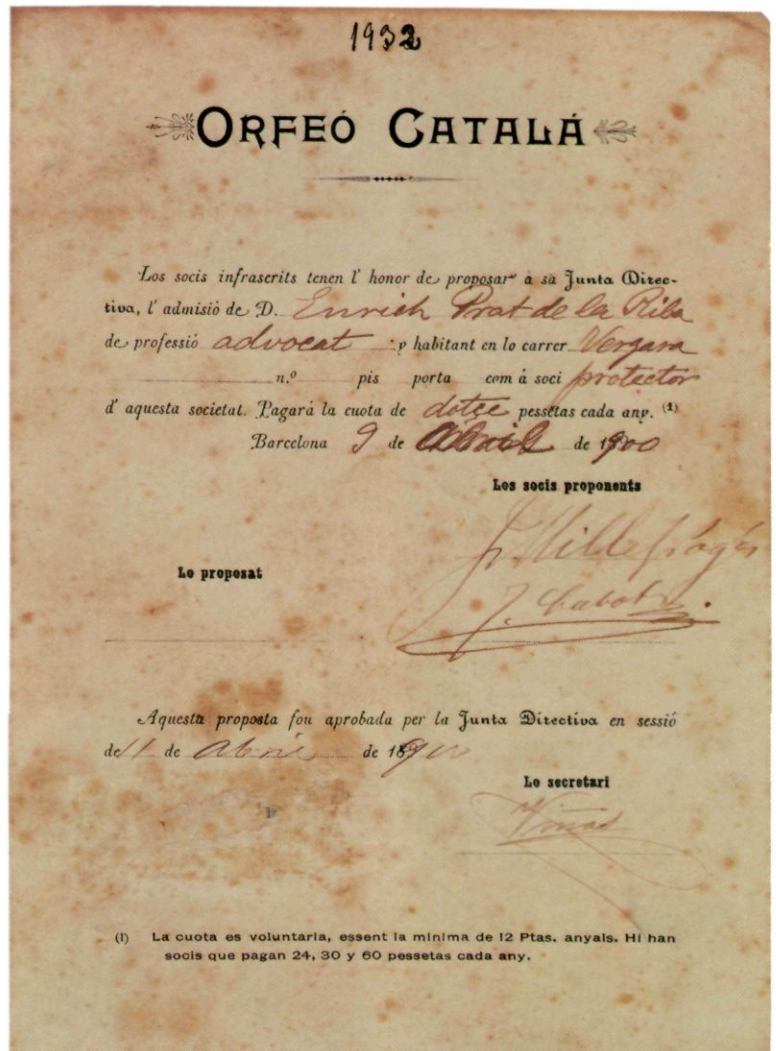 1932
ORFEÓ CATALÁ
Los socis infrascrits tenen l' honor de proposar á sa Junta Direc-
tiva, l' admisió de D. Enrich Prat de la Riba
de professió advocat y habitant en lo carrer Vergara
n.º pis porta com á soci protector
d' aquesta societat. Pagará la cuota de dotçe pessetas cada any. (1)
Barcelona 9 de Abril de 1900
Los socis proponents
Lo proposat
J. Cabot
Aquesta proposta fou aprobada per la Junta Directiva en sessió
de 11 de abril de 1900
Lo secretari
Viñas
(1) La cuota es voluntaria, essent la minima de 12 Ptas. anyals. Hi han
socis que pagan 24, 30 y 60 pessetas cada any.